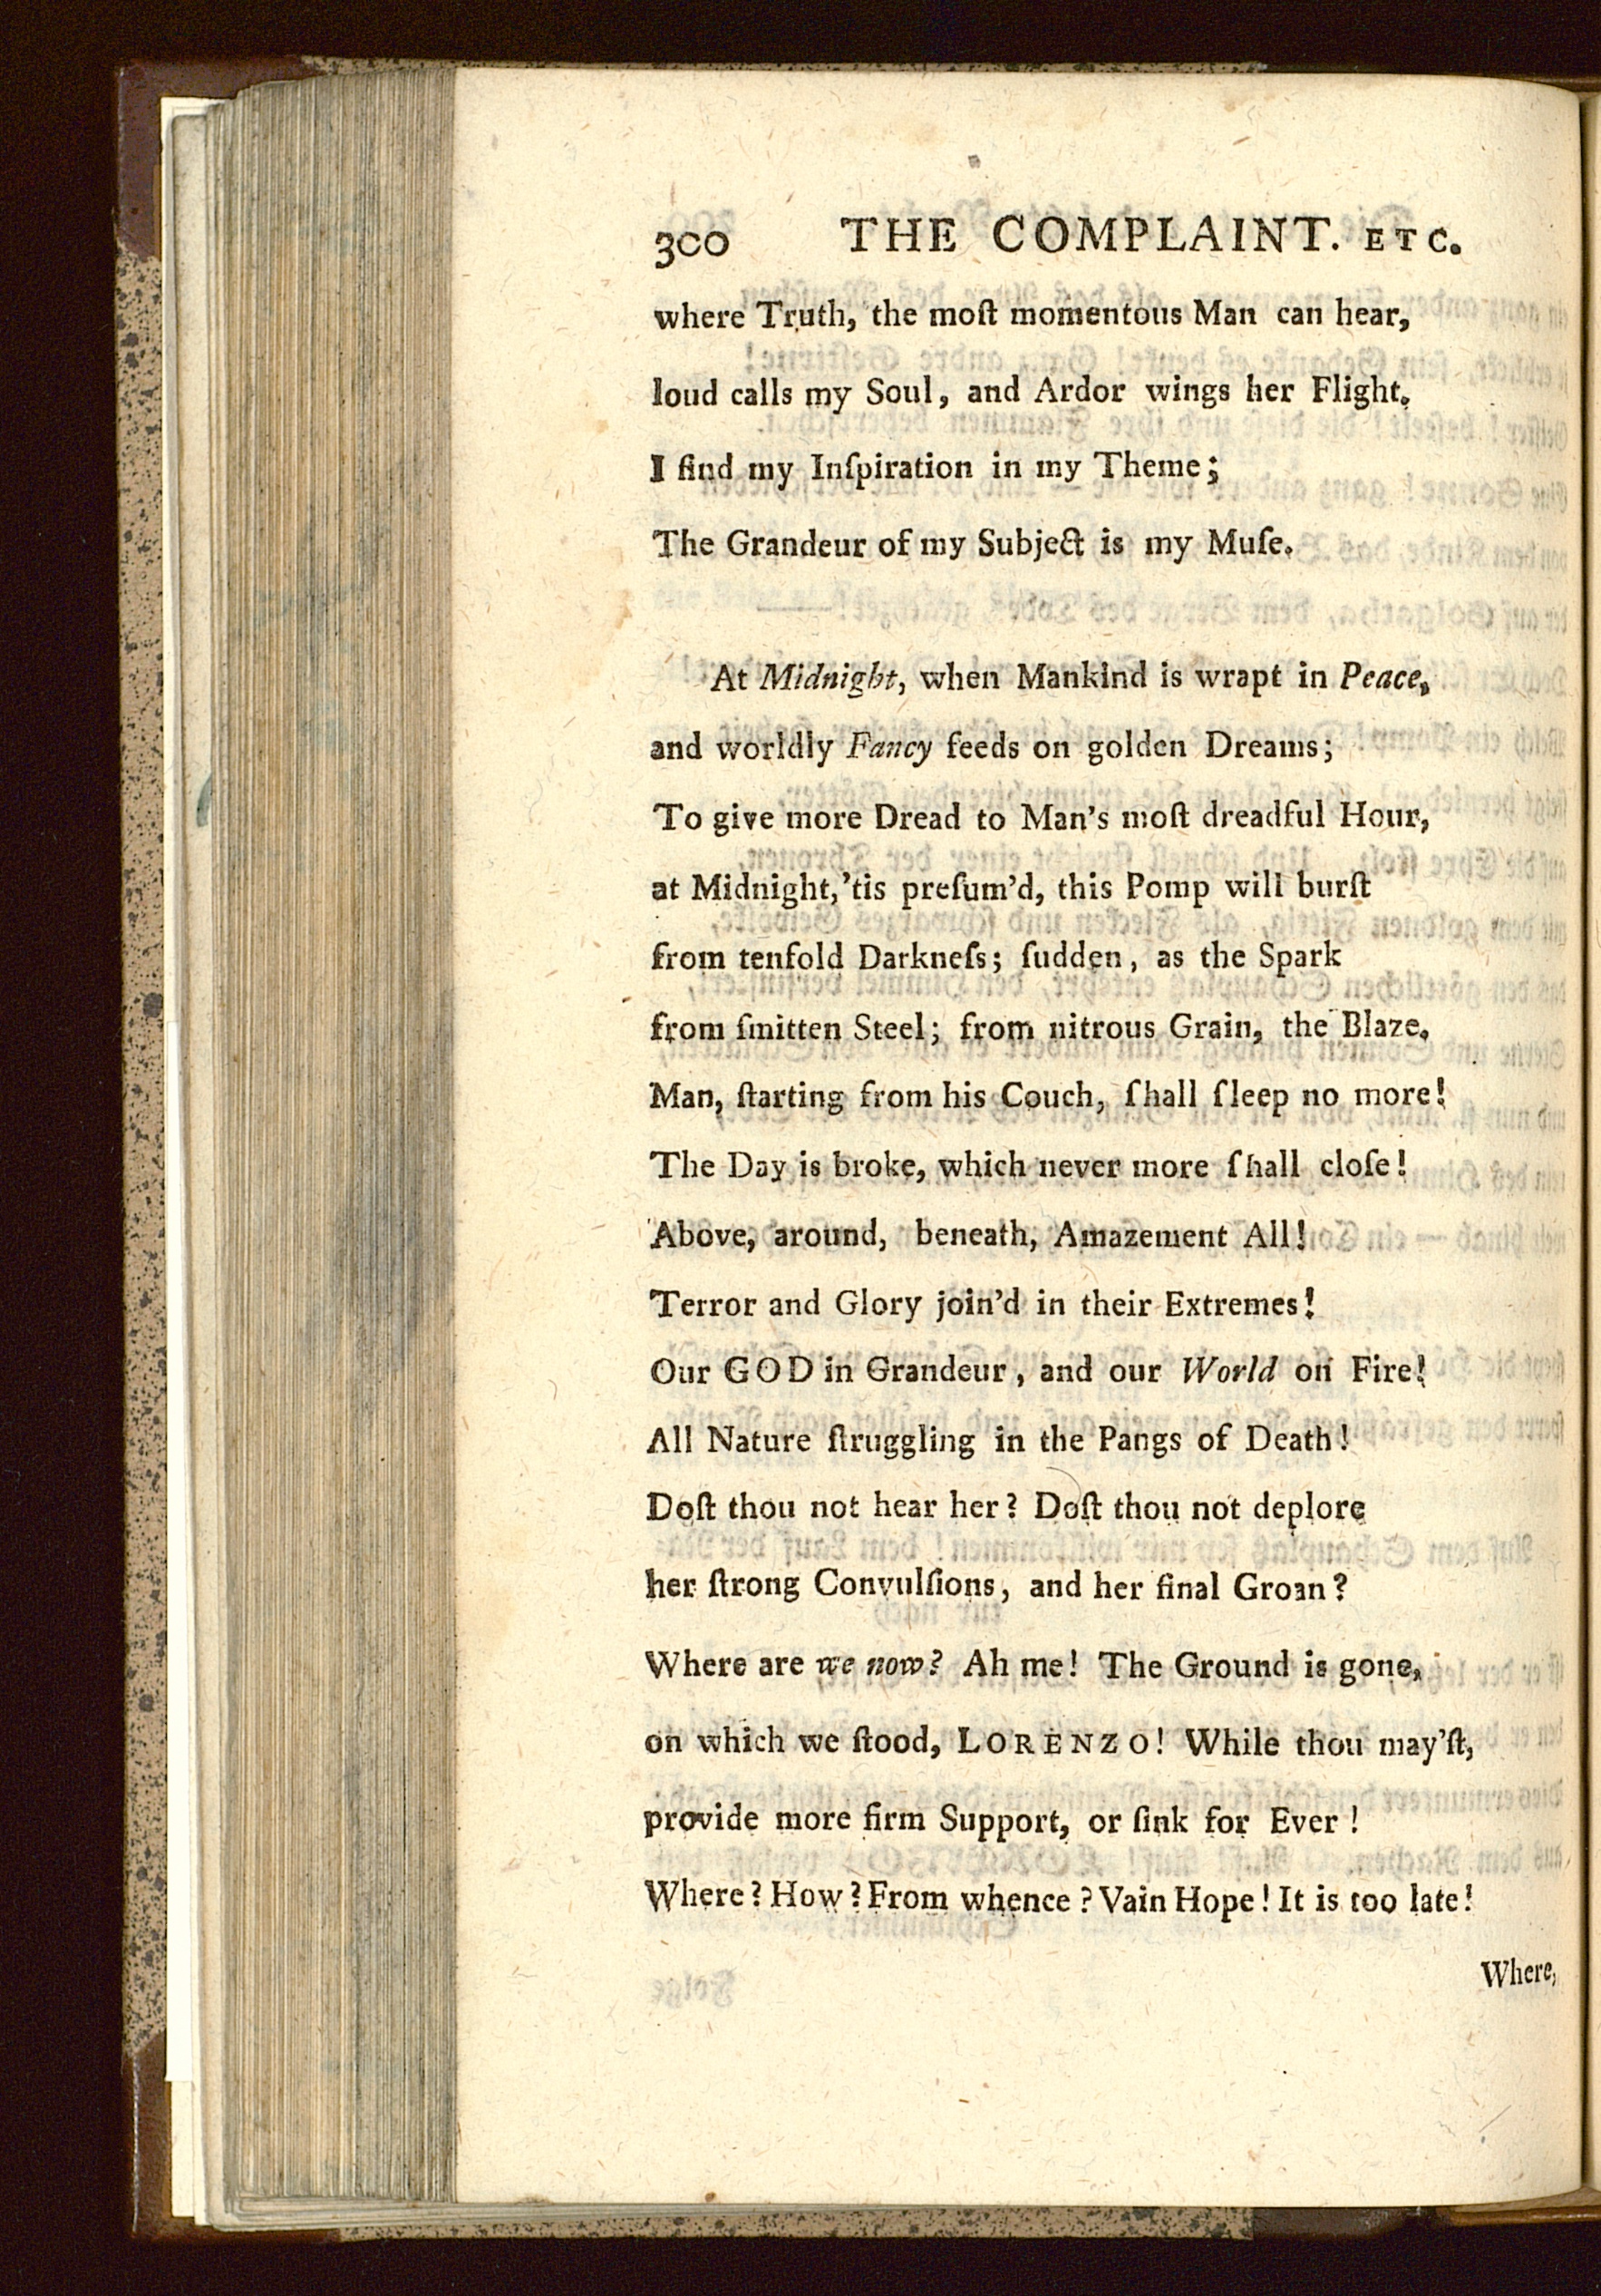 300 THE COMPLAINT. ETC.
where Truth, the moſt momentous Man can hear,
loud calls my Soul, and Ardor wings her Flight.
I find my Inſpiration in my Theme;
The Grandeur of my Subject is my Muſe.
At Midnight, when Mankind is wrapt in Peace,
and worldly Fancy feeds on golden Dreams;
To give more Dread to Man's moſt dreadful Hour,
at Midnight,'tis preſum'd, this Pomp will burſt
from tenfold Darkneſs; ſudden, as the Spark
from ſmitten Steel; from nitrous Grain, the Blaze.
Man, ſtarting from his Couch, ſhall ſleep no more!
The Day is broke, which never more ſhall cloſe!
Above, around, beneath, Amazement All!
Terror and Glory join'd in their Extremes!
Our GOD in Grandeur, and our World on Fire!
All Nature ſtruggling in the Pangs of Death!
Doſt thou not hear her? Doſt thou not deplore
her ſtrong Convulſions, and her final Groan?
Where are we now? Ah me! The Ground is gone,
on which we ſtood, LORENZO! While thou may'ſt,
provide more firm Support, or ſink for Ever!
Where? How? From whence? Vain Hope! It is too late!
Where,